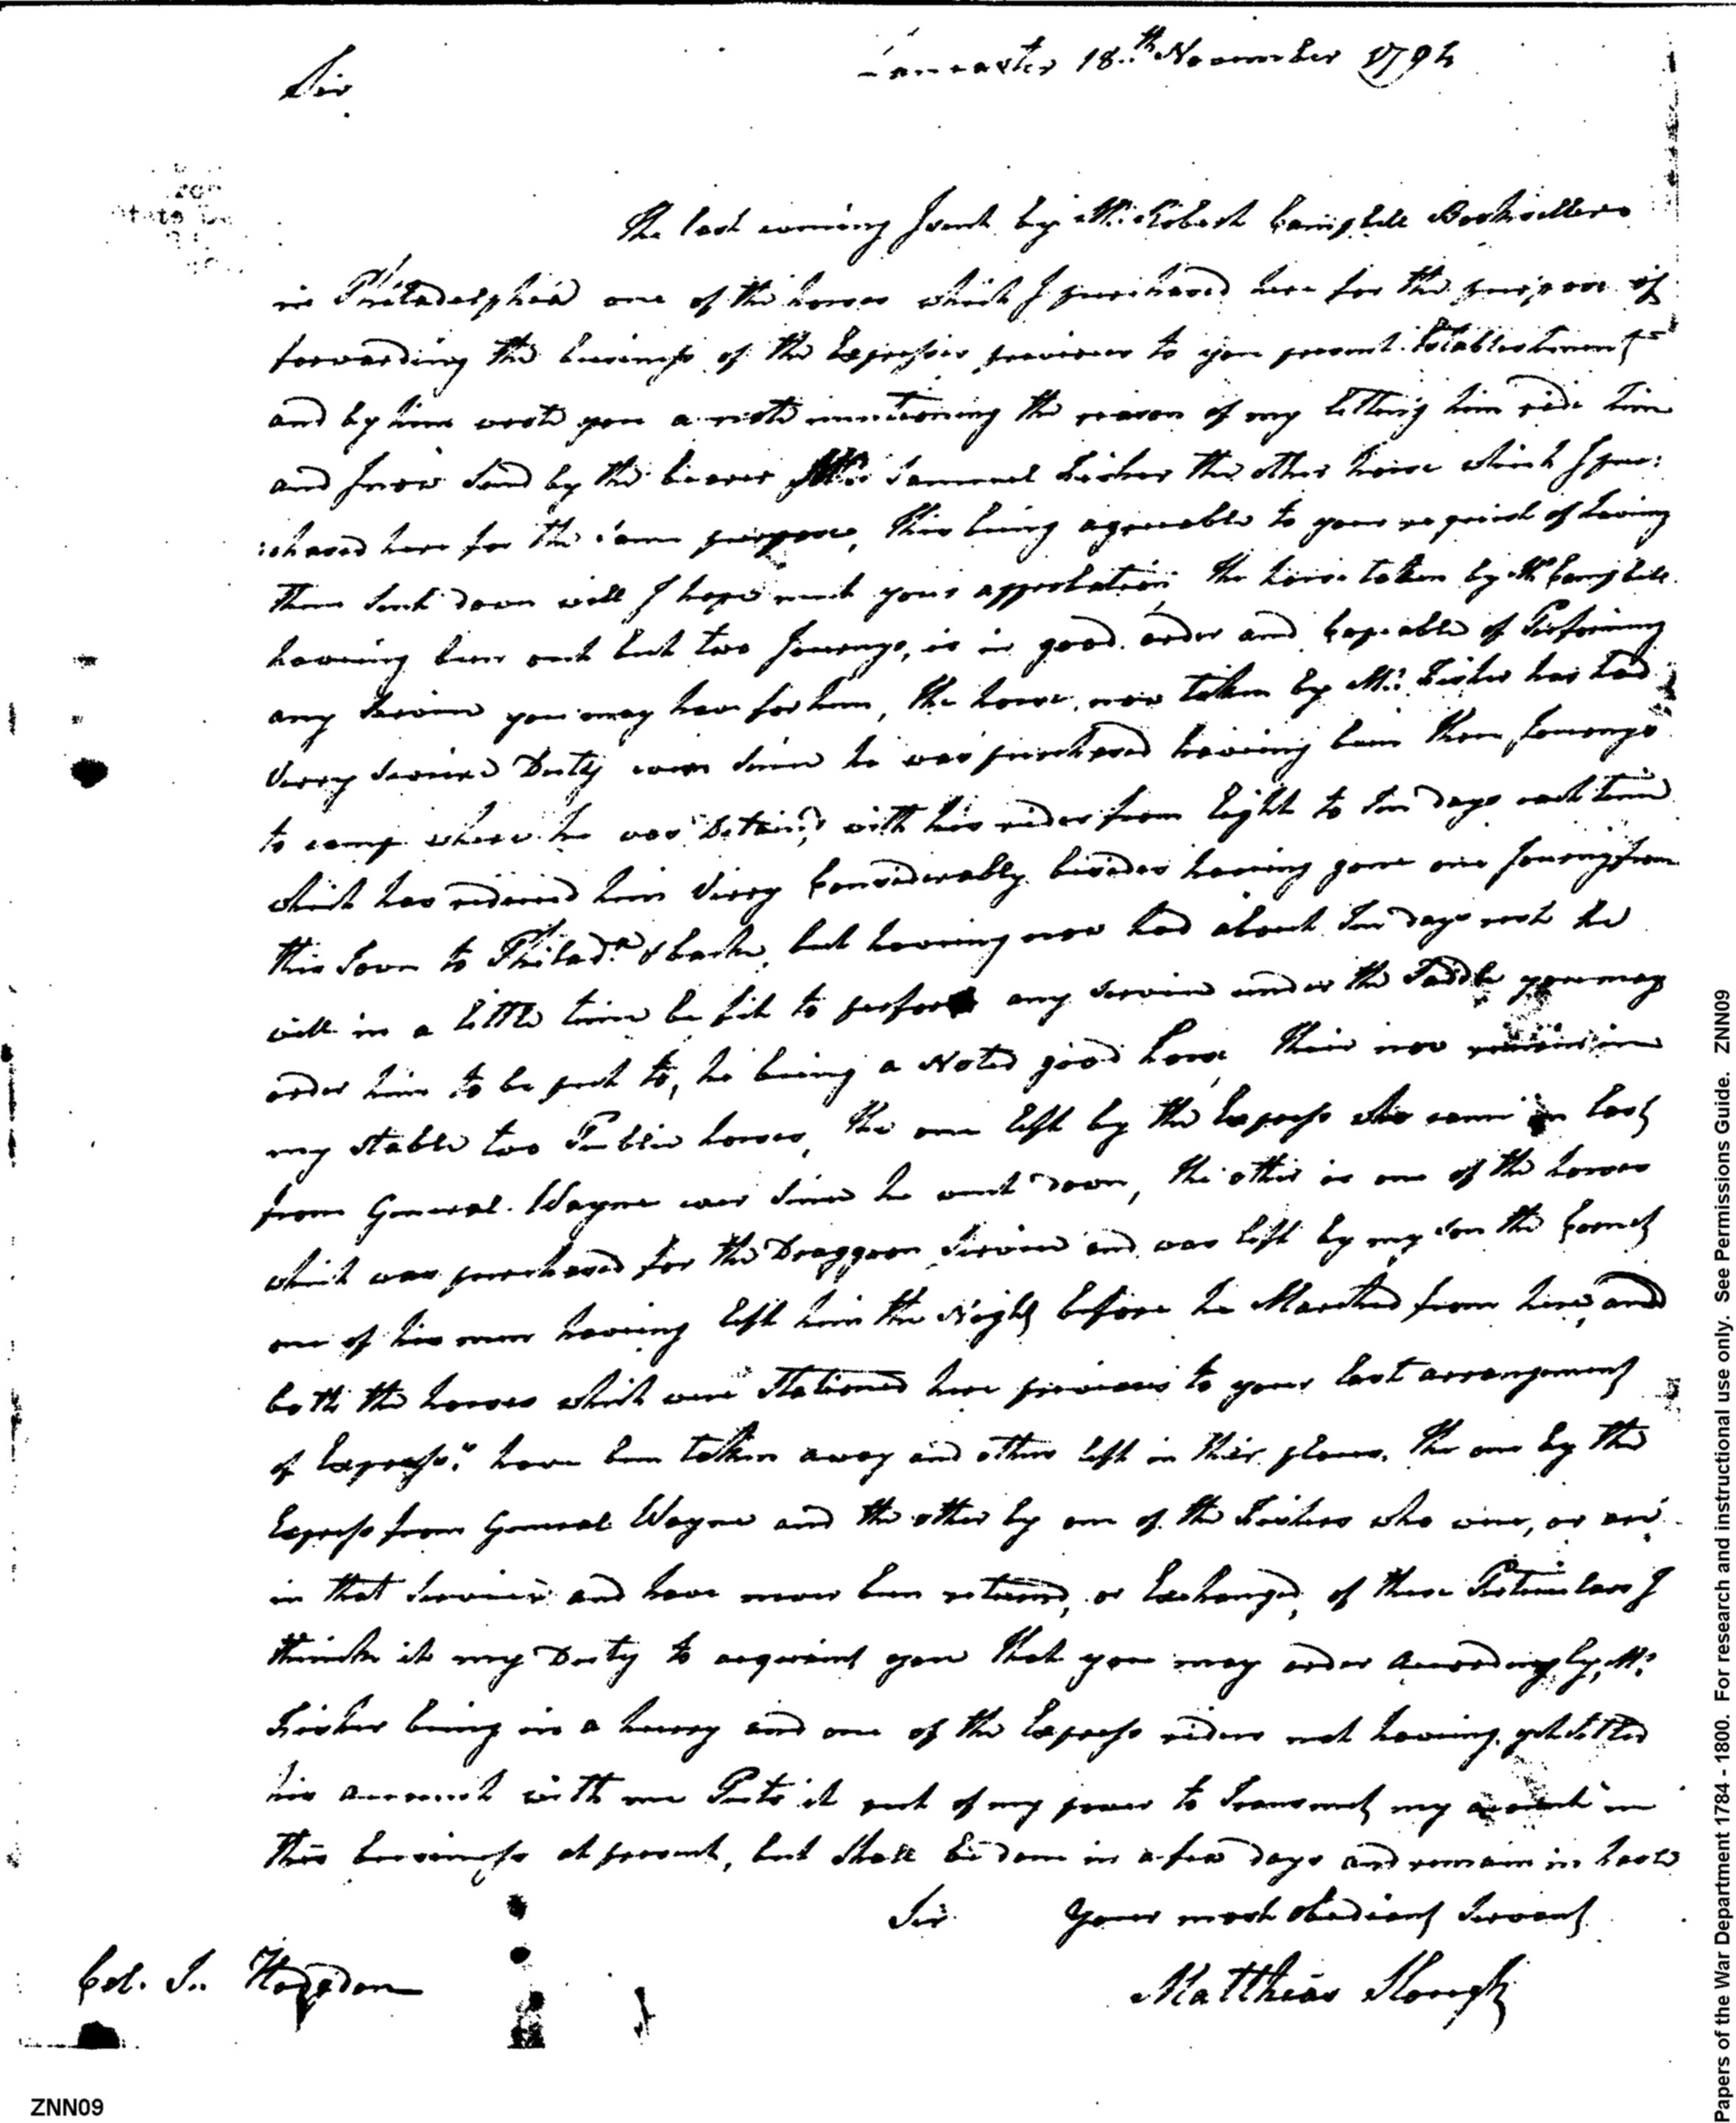 Lancaster 18.th November 1794
Sir
The last evening I sent by Mr. Robert Campbell Bookseller
in Philadelphia one of the horses which I purchased here for the purpose of
forwarding the business of the Expresses previous to your present Establishment
and by him wrote you a note mentioning the reason of my letting him ride him
and I now send by the bearer Mr. Samuel Fisher the other horse which I pur:
:chased here for the same purpose, this being agreeable to your request of having
them sent down will I hope meet your approbation The horse taken by Mr. Campbell
haveing been out but two Journeys, is in good order and Capeable of Performing
any Service you may have for him, the horse now taken by Mr. Fisher has had
Verry Severe Duty ever since he was purchased haveing been three Journeys
to camp where he was Detain'd with his rider from Eight to Ten days each time
which has reduced him Verry Considerably besides haveing gone one Journey from
this Town to Philada. & back, but haveing now had about Ten days rest he
will in a little time be fit to perform any service under the Saddle you may
order him to be put to, he being a Noted good horse, their now remain in
my stable two Publick horses, the one left by the Express who came in last
from General Wayne ever since he went down, the other is one of the horses
which was purchased for the Draggoon Service and was left by my Son the Cornet
one of his men haveing left him the Night before he Marched from here, and
both the horses which were Stationed here previous to your last arrangement
of Express's have been taken away and others left in their places. the one by the
Express from General Wayne and the other by one of the Fishers who were, or are
in that Service and have never been returned, or Exchanged, of these Particulars I
think it my Duty to acquaint you that you may order accordingly, Mr.
Fisher being in a hurry and one of the Express riders not haveing yet settled
his account with me Puts it out of my power to Transmit my account in
this business at present, but shall be done in a few days and remain in haste
Sir Your most obedient Servant
Matthias Slough
Col. S. Hogdon
ZNN09
Papers of the War Department 1784 - 1800. For research and instructional use only. See Permissions Guide. ZNN09